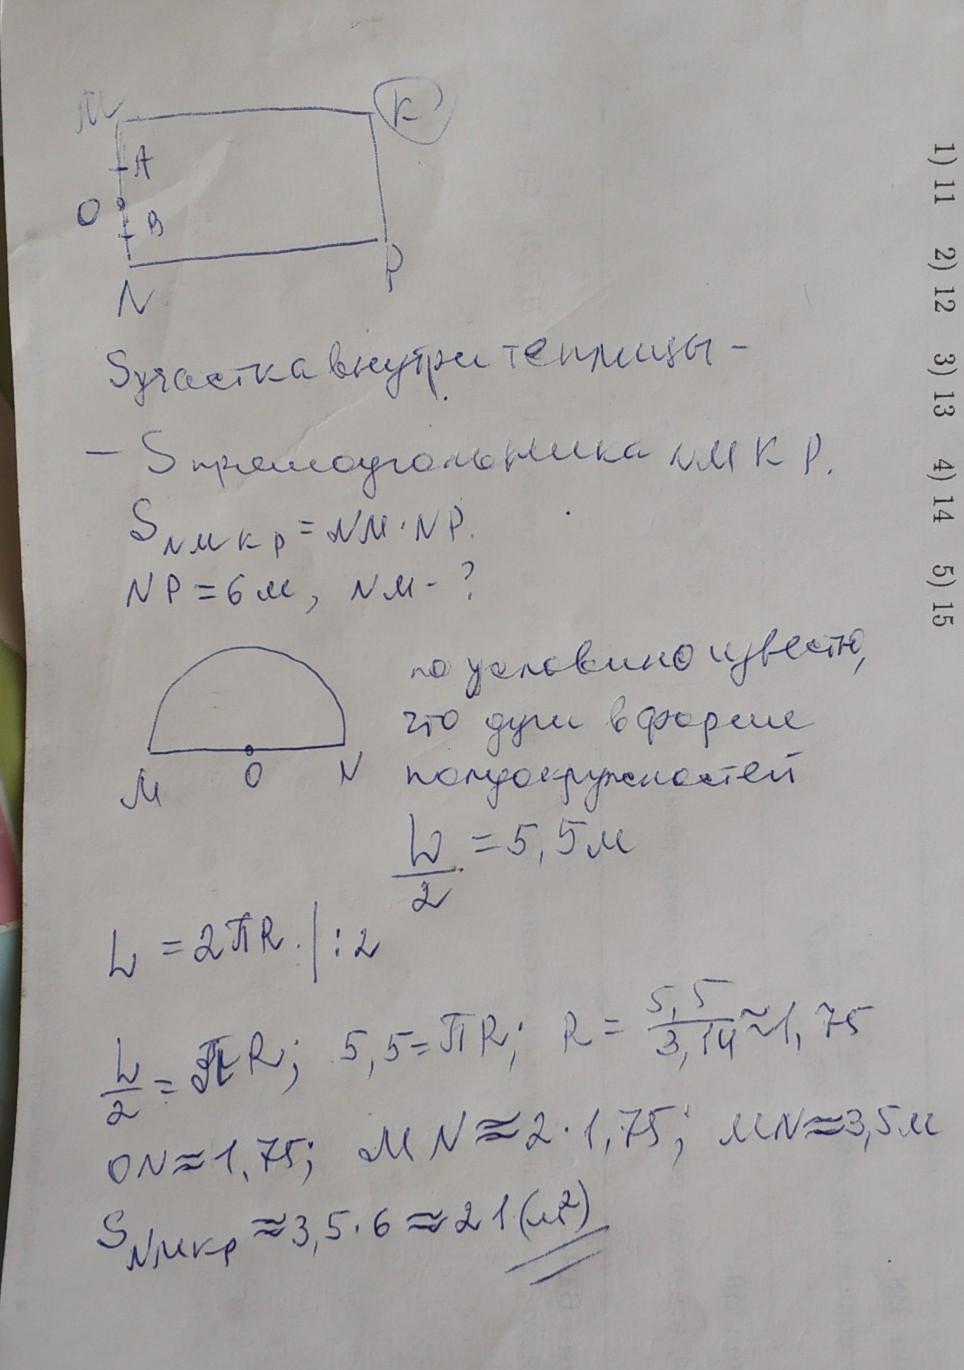 M K
A
O
B
N P
Sучастка внутри теплицы –
– Sпрямоугольника NMKP.
S NMKP = NM · NP.
NP = 6 м, NM - ?
по условию известно,
что дуги в форме
M O N полуокружностей
L/2 = 5,5 м
L = 2πR. | : 2
L/2 = πR; 5,5 = πR; R = 5,5/3,14 ≈ 1,75
ON ≈ 1,75; MN ≈ 2 · 1,75; MN ≈ 3,5 м
S NMKP ≈ 3,5 · 6 ≈ 21 (м²)
1) 11 2) 12 3) 13 4) 14 5) 15